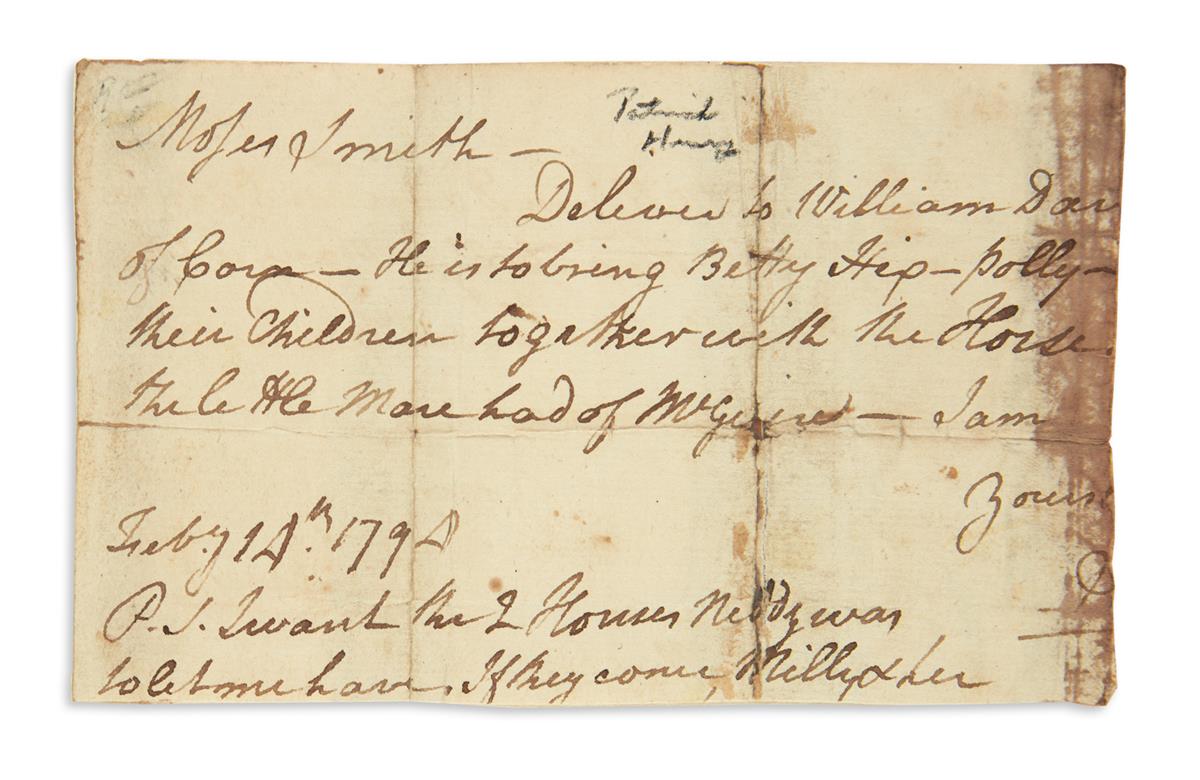 Moses Smith —
Patrick
Henry
Deliver to William Da
of Corn — He is to bring Betty Hip — Polly —
their Children together with the Horse
the little Mare had of McGuire — I am
Yours
Feby 14th. 1794
P
P.S. I want the 2 Horses Neddy was
to let me have. If they come, Milly & her